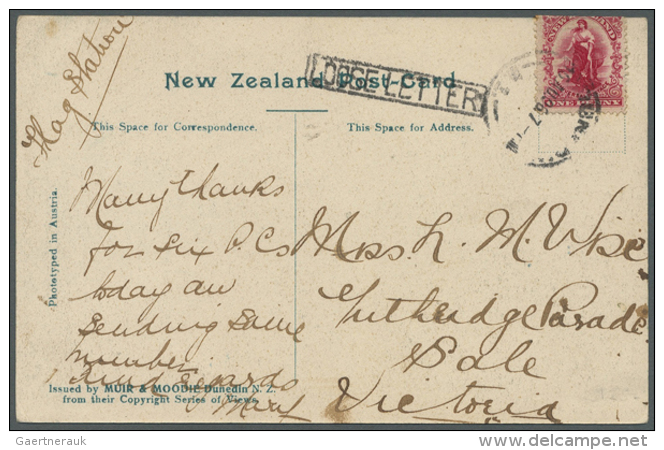 Flag Station
LOOSE LETTER
New Zealand Post-Card.
NEW ZEALAND
ONE PENNY
This Space for Correspondence.
This Space for Address.
Many thanks
for six P.Cs
today am
sending same
number
Kind regards
Miss L. M. Wise
Parade
Sale
Victoria
Phototyped in Austria.
Issued by MUIR & MOODIE Dunedin N. Z.
from their Copyright Series of Views.
Gaertnerauk
delcampe.net